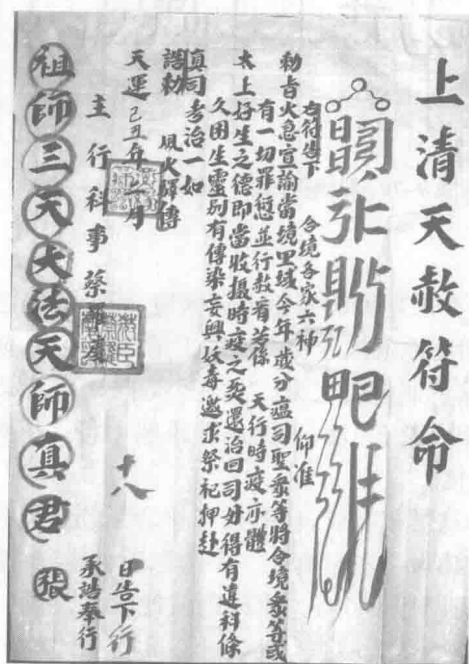 上清天赦符命
右符告下　合境各家六神　仰准
勅旨火急宣諭當境里域今年歲分瘟司聖衆等將合境衆等或
有一切罪愆並行赦宥若係　天行時疫亦體
太上好生之德即當收攝時疫之炁還治回司毋得有違科條
久困生靈別有傳染妄興妖毒邀求祭祀押赴
真司考治一如
誥勅　風火驛傳
天運己丑年　月
十八　日告下行
主行科事蔡　承誥奉行
祖師三天大法天師真君張